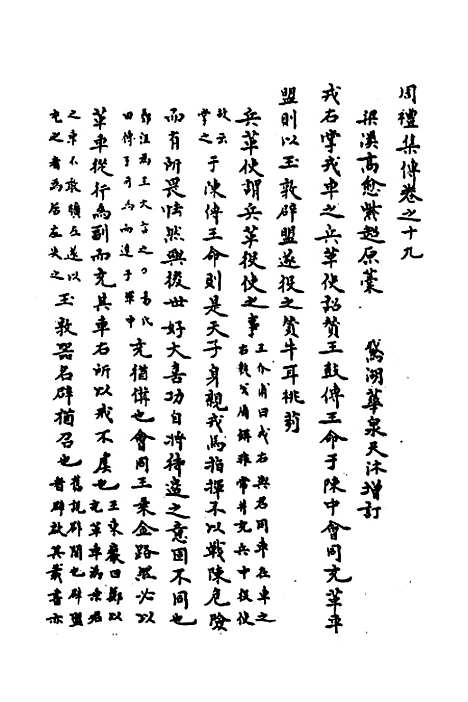 周禮集傳卷之十九
梁溪高愈紫超原藁 鵞湖華泉天沐增訂
戎右掌戎車之兵革使詔贊王鼓傳王命于陳中會同充革車
盟則以玉敦辟盟遂役之贊牛耳桃茢
兵革使謂兵革役使之事
王介甫曰戎右與君同車在車之
右執戈盾備非常并充兵中役使
故云
掌之
于陳傳王命則是天子身親戎馬指揮不以戰陳危險
而有所畏怯然與後世好大喜功自將待邊之意固不同也
鄭注為王大言之
曰傳于
而進于軍中
充猶備也會同王乘金路然必以
革車從行為副而充其車右所以戒不虞也
王東巖曰鄭以
充革車為乗君
之車不敢曠左遂以
充之者為居左失之
玉敦器名辟猶召也
舊說辟開也辟盟
者辟啟其載書亦